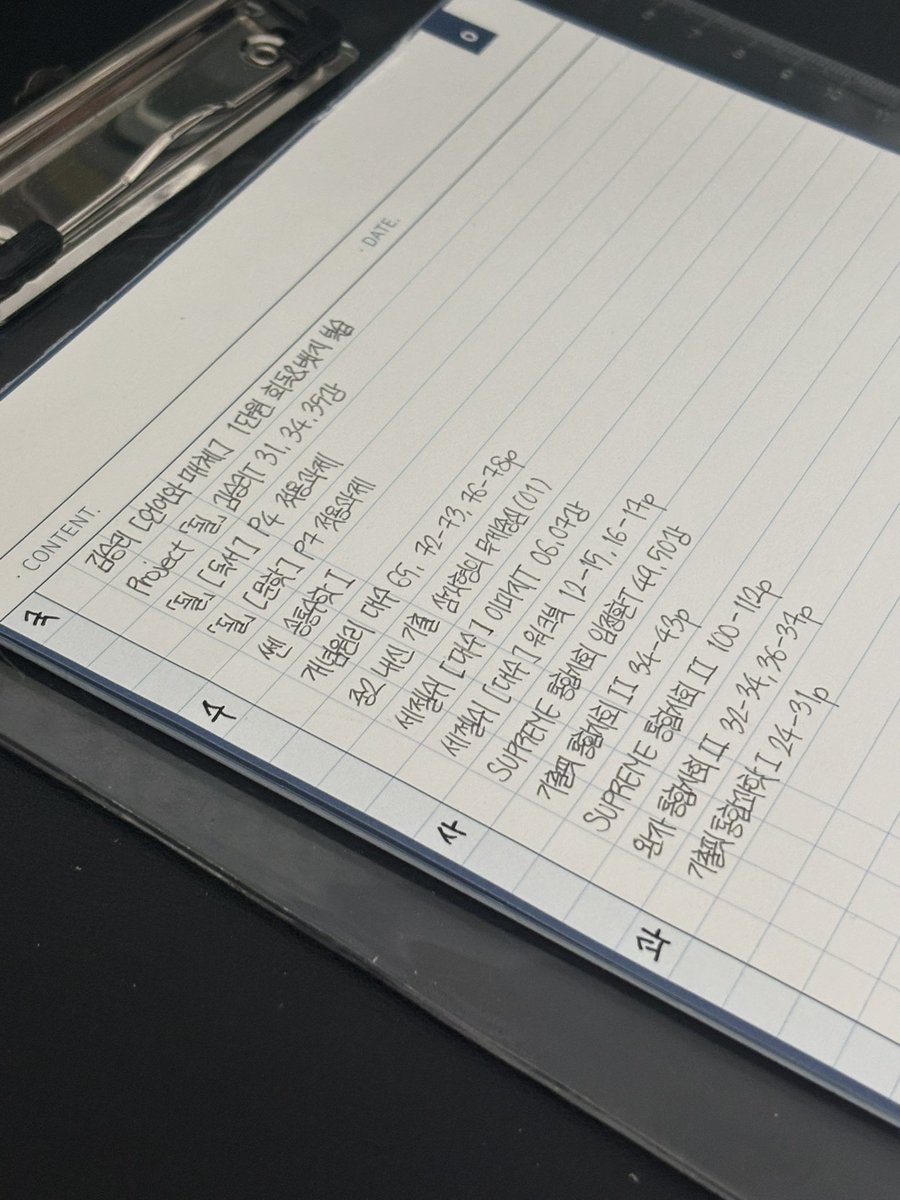 CONTENT.
DATE.
국
김승리 [언어와 매체] 1단원 회독&뱃지 복습
Project 「돌」 김승리T 31, 34, 35강
「돌」 [독서] P4 적용과제
「돌」 [문학] P7 적용과제
수
쎈 공통수학 I
개념원리 대수 65, 72-73, 76-78p
고2 내신 기출 삼각형의 무게중심(01)
세젤쉬 [대수] 이미지T 06, 07강
세젤쉬 [대수] 워크북 12-15, 16-17p
사
SUPREME 통합사회 임정환T 49, 50강
기출픽 통합사회 II 34-43p
SUPREME 통합사회 II 100-112p
완자 통합사회 II 32-34, 36-37p
과
기출픽 통합과학 I 24-31p